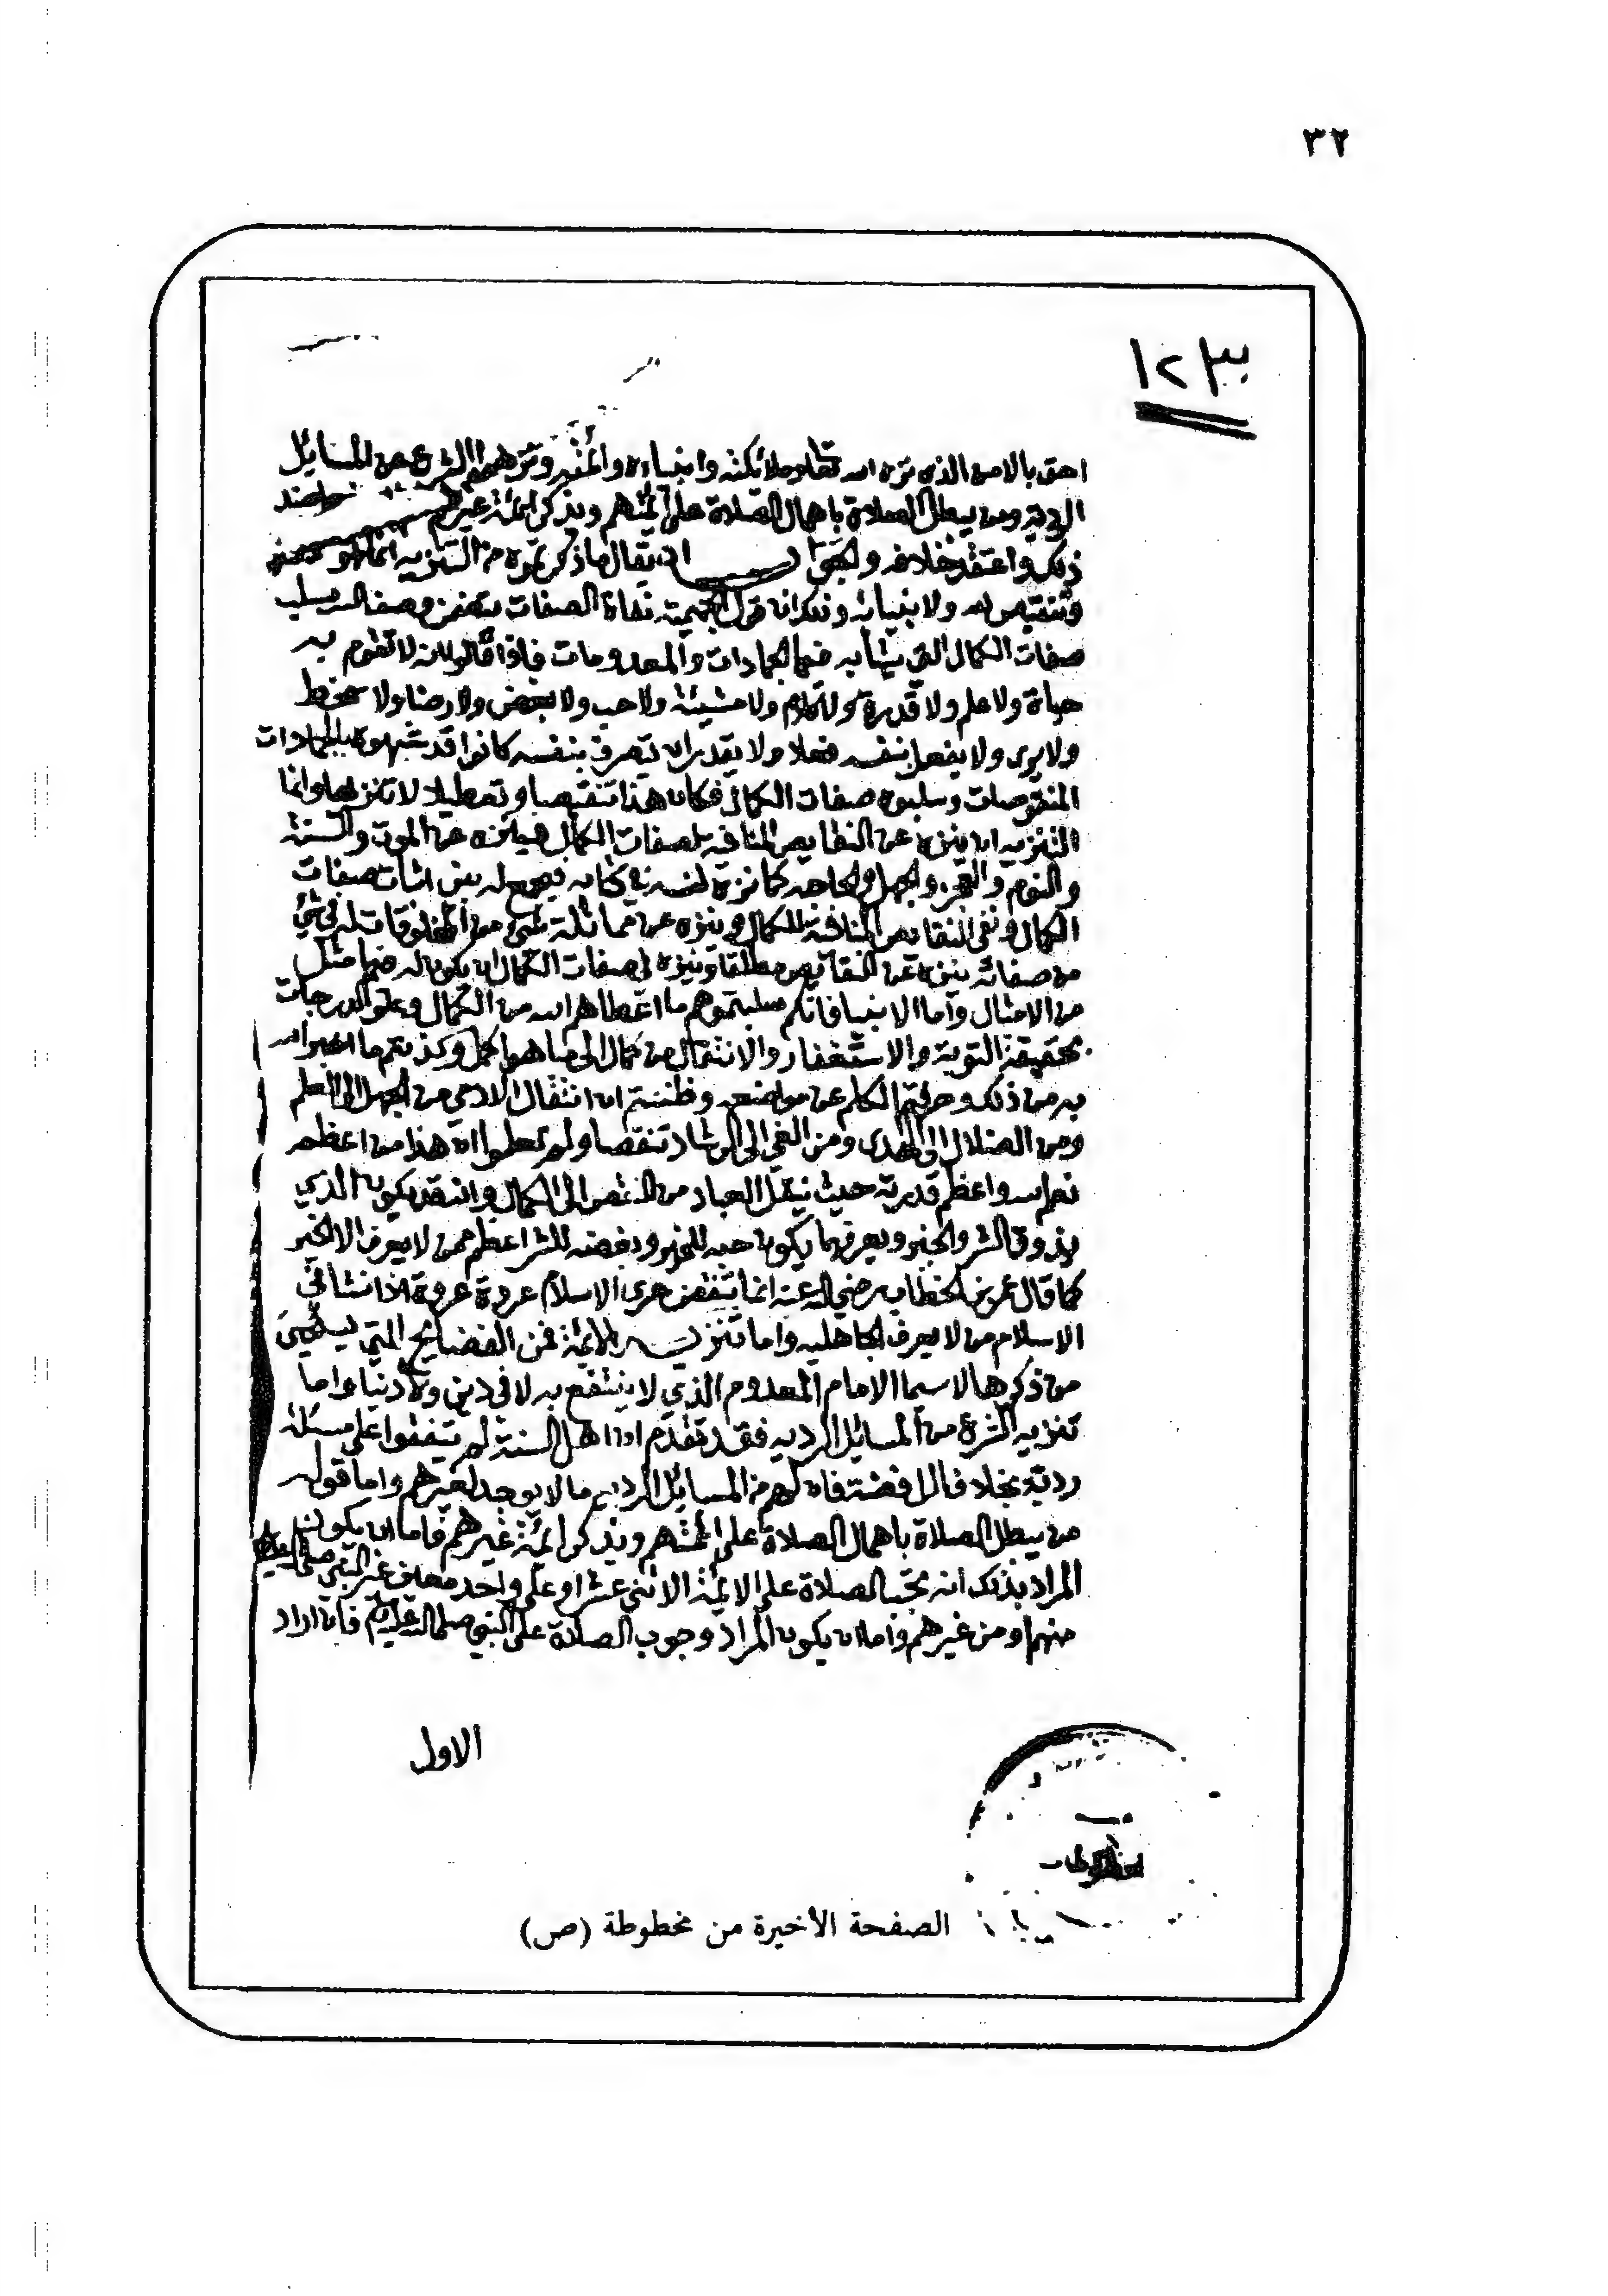 ٣٢
احق بالامن الذي نزه الله تعالى وملائكته وانبياءه وائمته ونزه الشرع عن المسايل
الردية ومن يبطل الصلاة باهمال الصلاة على ائمتهم ويذكر ائمة غيرهم ضد
ذلك واعتقد خلافه والجواب ان يقال ما ذكرتموه من التنزيه انما هو
وتنقيص لله ولانبيائه وذلك ان قول الجهمية نفاة الصفات يتضمن وصف الله بسلب
صفات الكمال التي يشابه فيها الجمادات والمعدومات فاذا قالوا انه لا تقوم به
حياة ولا علم ولا قدرة ولا كلام ولا مشيئة ولا حب ولا بغض ولا رضا ولا سخط
ولا يرى ولا يفعل بنفسه فعلا ولا يقدر ان يتصرف بنفسه كانوا قد شبهوه بالجمادات
المنقوصات وسلبوه صفات الكمال فكان هذا تنقيصا وتعطيلا لا تنزيها وانما
التنزيه ان ينزه عن النقايص المنافية لصفات الكمال فينزه عن الموت والسنة
والنوم والعجز والجهل والحاجة كما نزه نفسه في كتابه فيجمع له بين اثبات صفات
الكمال ونفي النقايص المنافية للكمال وينزه عن مماثلة شيء من المخلوقات له في شيء
من صفاته ينزه عن النقايص مطلقا وينزه في صفات الكمال ان يكون له فيها مثل
من الامثال واما الانبيا فانكم سلبتموهم ما اعطاهم الله من الكمال وعلو الدرجات
بحقيقة التوبة والاستغفار والانتقال من كمال الى ما هو اكمل وكذبتم ما اخبر الله
به من ذلك وحرفتم الكلم عن مواضعه وظننتم ان انتقال الادمي من الجهل الى العلم
ومن الضلال الى الهدى ومن الغي الى الرشاد تنقصا ولم تعلموا ان هذا من اعظم
نعم الله واعظم قدرته حيث ينقل العباد من النقص الى الكمال وانه قد يكون الذي
يذوق الشر والخير ويعرفهما يكون حبه للخير وبغضه للشر اعظم ممن لا يعرف الا الخير
كما قال عمر بن الخطاب رضي الله عنه انما تنقض عرى الاسلام عروة عروة اذا نشا في
الاسلام من لا يعرف الجاهلية واما تنزيه الائمة فمن الفضايح التي يستحيى
من ذكرها لا سيما الامام المعدوم الذي لا ينتفع به لا في دين ولا دنيا واما
تنزيه الشرع من المسايل الردية فقد تقدم ان اهل السنة لم يتفقوا على مسئلة
ردية بخلاف الرافضة فان لهم من المسايل الردية ما لا يوجد لغيرهم واما قوله
من يبطل الصلاة باهمال الصلاة على ائمتهم ويذكر ائمة غيرهم فاما ان يكون
المراد بذلك انه تجب الصلاة على الائمة الاثني عشر او على واحد معين غير النبي صلى الله عليه وسلم
منهم او من غيرهم واما ان يكون المراد وجوب الصلاة على النبي صلى الله عليه وسلم فان اراد
الاول
الصفحة الأخيرة من مخطوطة (ص)